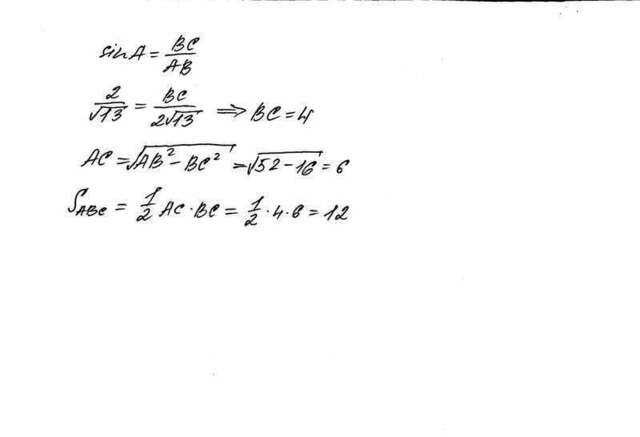 sin A = BC/AB
2/√13 = BC/2√13 ⇒ BC = 4
AC = √AB² − BC² = √52 − 16 = 6
S_ABC = 1/2 AC · BC = 1/2 · 4 · 6 = 12